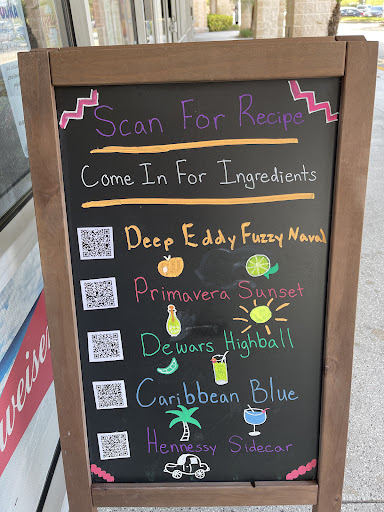 Scan For Recipe
Come In For Ingredients
Deep Eddy Fuzzy Naval
Primavera Sunset
Dewars Highball
Caribbean Blue
Hennessy Sidecar
weiser